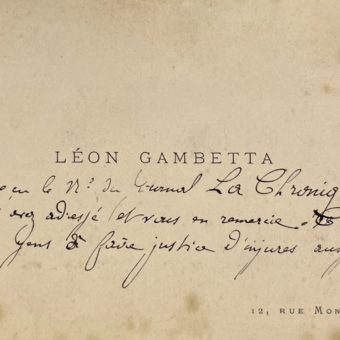 LÉON GAMBETTA
en le Nº. du Journal La Chroniq
avez adressé et vous en remercie.
gens à faire justice d'injures aus
12, RUE MON